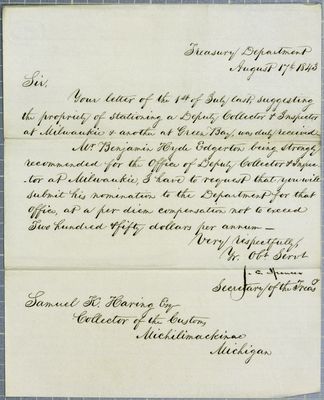 Treasury Department
August 17th 1843
Sir,
Your letter of the 1st of July last, suggesting
the propriety of stationing a Deputy Collector & Inspector
at Milwaukie & another at Green Bay, was duly received.
Mr. Benjamin Hyde Edgerton being strongly
recommended for the Office of Deputy Collector & Inspec-
-tor at Milwaukie, I have to request that you will
submit his nomination to the Department for that
office, at a per diem compensation not to exceed
Two hundred & fifty dollars per annum —
Very Respectfully,
Yr. Obt Servt
J. C. Spencer
Secretary of the Treasy
Samuel K. Haring Esq
Collector of the Customs
Michilimackinac
Michigan